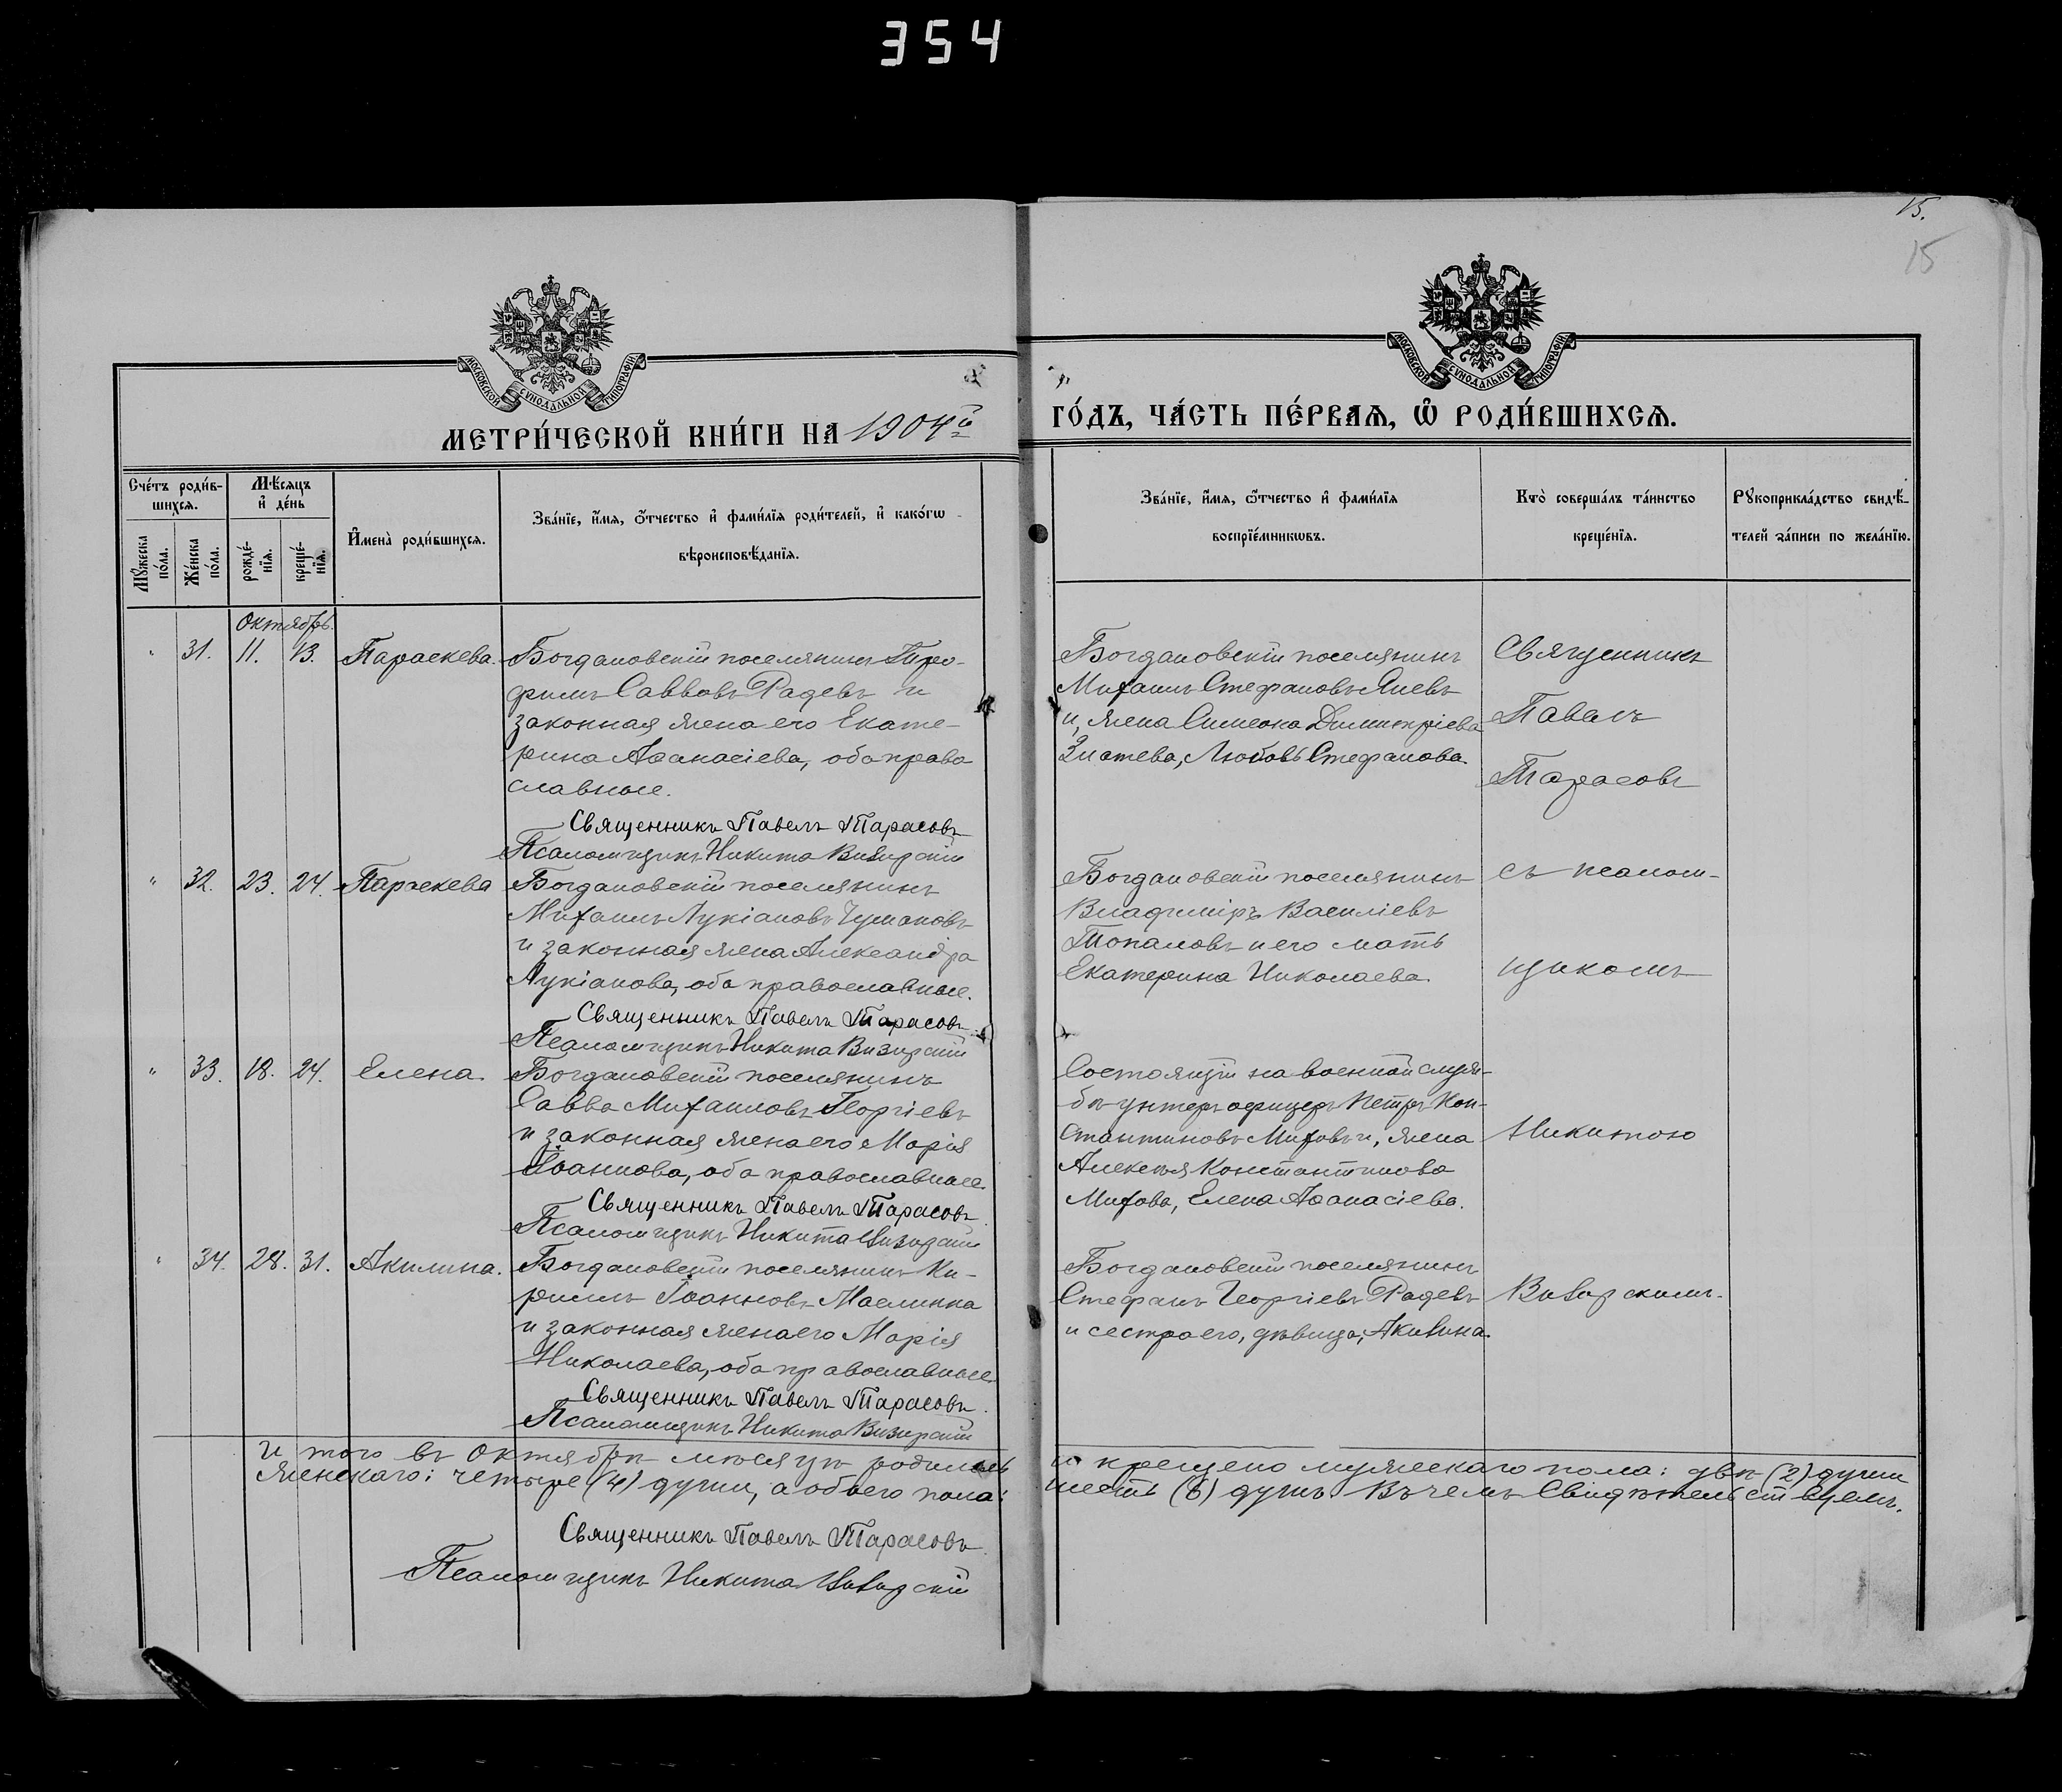 354
15.
15
МОСКОВСКОЙ СУНОДАЛЬНОЙ ТИПОГРАФІИ
МОСКОВСКОЙ СУНОДАЛЬНОЙ ТИПОГРАФІИ
МЕТРИ́ЧЕСКОЙ КНИ́ГИ НА 1904й
ГО́ДЪ, ЧА́СТЬ ПЕ́РВАѦ, Ѡ РОДИ́ВШИХСѦ.
Сче́тъ роди́в-
шихсѧ.
Мꙋ́жеска
по́ла.
Же́нска
по́ла.
Мѣ́сѧцъ
и҆ де́нь
рожде́-
нїѧ.
креще́-
нїѧ.
И҆мена̀ роди́вшихсѧ.
Зва́нїе, и҆́мѧ, ѻ҆́тчество и҆ фами́лїѧ роди́телей, и҆ како́гѡ
вѣроисповѣ́данїѧ.
Зва́нїе, и҆́мѧ, ѻ҆́тчество и҆ фами́лїѧ
воспрїе́мникѡвъ.
Кто̀ соверша́лъ та́инство
креще́нїѧ.
Рꙋкоприкла́дство свидѣ́-
телей за́писи по жела́нїю.
Октябрь.
" 31. 11. 13. Параскева. Богдановскій поселянинъ Тро-
фимъ Саввовъ Радевъ и
законная жена его Екате-
рина Аѳанасіева, оба право
славные.
Священникъ Павелъ Тарасовъ
Псаломщикъ Никита Визирскій
Богдановскій поселянинъ
Михаилъ Стефановъ Яневъ
и, жена Симеона Димитріева
Златева, Любовь Стефанова.
Священникъ
Павелъ
Тарасовъ
" 32. 23. 24. Параскева Богдановскій поселянинъ
Михаилъ Лукіановъ Чумаковъ
и законная жена Александра
Лукіанова, оба православные.
Священникъ Павелъ Тарасовъ
Псаломщикъ Никита Визирскій
Богдановскій поселянинъ
Владиміръ Василіевъ
Топаловъ и его мать
Екатерина Николаева.
съ псалом-
щикомъ
" 33. 18. 24. Елена. Богдановскій поселянинъ
Савва Михаиловъ Георгіевъ
и законная жена его Марія
Іоаннова, оба православные.
Священникъ Павелъ Тарасовъ
Псаломщикъ Никита Визирскій
Состоящій на военной служ-
бѣ унтеръ офицеръ Петръ Кон-
стантиновъ Митовъ и, жена
Алексѣя Константинова
Митова, Елена Аѳанасіева.
Никитою
" 34. 28. 31. Акилина. Богдановскій поселянинъ Ки-
риллъ Іоанновъ Маслинка
и законная жена его Марія
Николаева, оба православные.
Священникъ Павелъ Тарасовъ
Псаломщикъ Никита Визирскій
Богдановскій поселянинъ
Стефанъ Георгіевъ Радевъ
и сестра его, дѣвица, Акилина.
Визирскимъ.
И того въ Октябрѣ мѣсяцѣ родилось и крещено мужескаго пола: двѣ (2) души
женскаго: четыре (4) души, а обоего пола: шесть (6) душъ. Въ чемъ Свидѣтельствуемъ.
Священникъ Павелъ Тарасовъ
Псаломщикъ Никита Визирскій